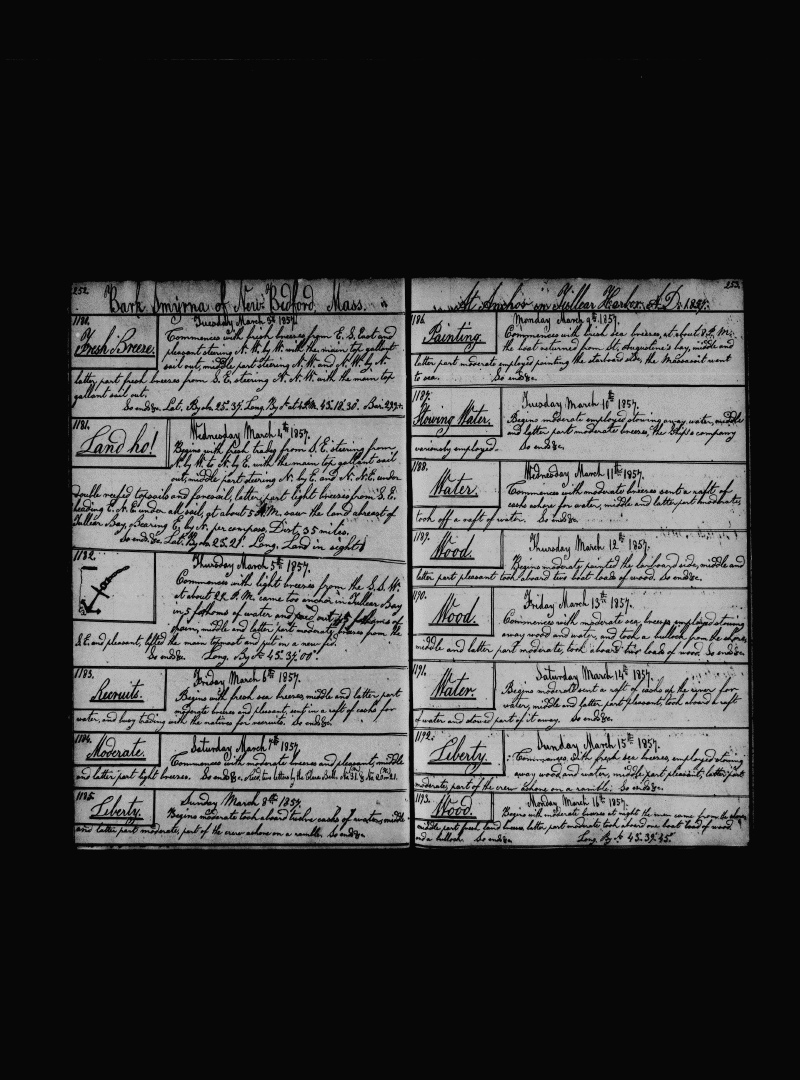 252
Bark Smyrna of New Bedford Mass.
1180.
Fresh Breeze.
Tuesday March 3d 1857.
Commences with fresh breezes from E.S. East and
pleasant steering N. W. by W. with the main top gallant
sail out, middle part steering N.W. and N.W. by N.
latter part fresh breezes from S.E. steering N.N.W. with the main top
gallant sail out.
So ends &c. Lat. By obs. 25.37. Long. By
1181.
Land ho!
Wednesday March 4th 1857.
Begins with fresh trades from S.E. steering from
N. by W. to N. by E. with the main top gallant sail
out, middle part steering N. by E. and N.N.E. under
double reefed topsails and foresail, latter part light breezes from S.E.
heading N.E. under all sail, at about 5 A.M. saw the land abreast of
Tullear Bay, Bearing E. by N. per compass, Dist. 35 miles.
So ends &c. Lat. By obs. 23.21. Long. Land in sight
1182.
Thursday March 5th 1857.
Commences with light breezes from the S.S.W.
at about P.M. came to anchor in Tullear Bay
in 5 fathoms of water and out fathoms of
chain, middle and latter part moderate breezes from the
S.E. and pleasant, lifted the main topmast and put in a new fid.
So ends &c. Long. By 45.37.00".
1183.
Recruits.
Friday March 6th 1857.
Begins with fresh sea breezes, middle and latter part
moderate breezes and pleasant, sent in a raft of casks for
water, and busy trading with the natives for recruits. So ends &c.
1184.
Moderate.
Saturday March 7th 1857.
Commences with moderate breezes and pleasant, middle
and latter part light breezes. So ends &c. letters by the
1185.
Liberty.
Sunday March 8th 1857.
Begins moderate took aboard twelve casks of water, middle
and latter part moderate, part of the crew ashore on a ramble. So ends &c.
253
At Anchor in Tullear Harbor A.D. 1857.
1186
Painting.
Monday March 9th 1857.
Commences with brisk sea breezes, at about P.M.
the boat returned from St. Augustine's bay, middle and
latter part moderate employed painting the starboard side, the Massasoit went
to sea. So ends &c.
1187.
Stowing Water.
Tuesday March 10th 1857.
Begins moderate employed stowing away water, middle
and latter part moderate breezes, the ship's company
variously employed. So ends &c.
1188.
Water
Wednesday March 11th 1857.
Commences with moderate breezes sent a raft of
casks ashore for water, middle and latter part moderate,
took off a raft of water. So ends &c.
1189.
Wood.
Thursday March 12th 1857.
Begins moderate painted the larboard side, middle and
latter part pleasant took aboard two boat loads of wood. So ends &c.
1190.
Wood.
Friday March 13th 1857.
Commences with moderate sea breezes, employed stowing
away wood and water, and took a bullock from the shore,
middle and latter part moderate, took aboard two loads of wood. So ends &c.
1191.
Water.
Saturday March 14th 1857.
Begins moderate sent a raft of casks up the river for
water, middle and latter part pleasant, took aboard a raft
of water and stowed part of it away. So ends &c.
1192.
Liberty.
Sunday March 15th 1857.
Commences with fresh sea breezes, employed stowing
away wood and water, middle part pleasant, latter part
moderate, part of the crew ashore on a ramble. So ends &c.
1193.
Wood.
Monday March 16th 1857.
Begins with moderate breezes at night the men came from the shore,
middle part fresh land breeze latter part moderate took aboard one boat load of wood
and a bullock. So ends &c. Long. By 45.37.45"